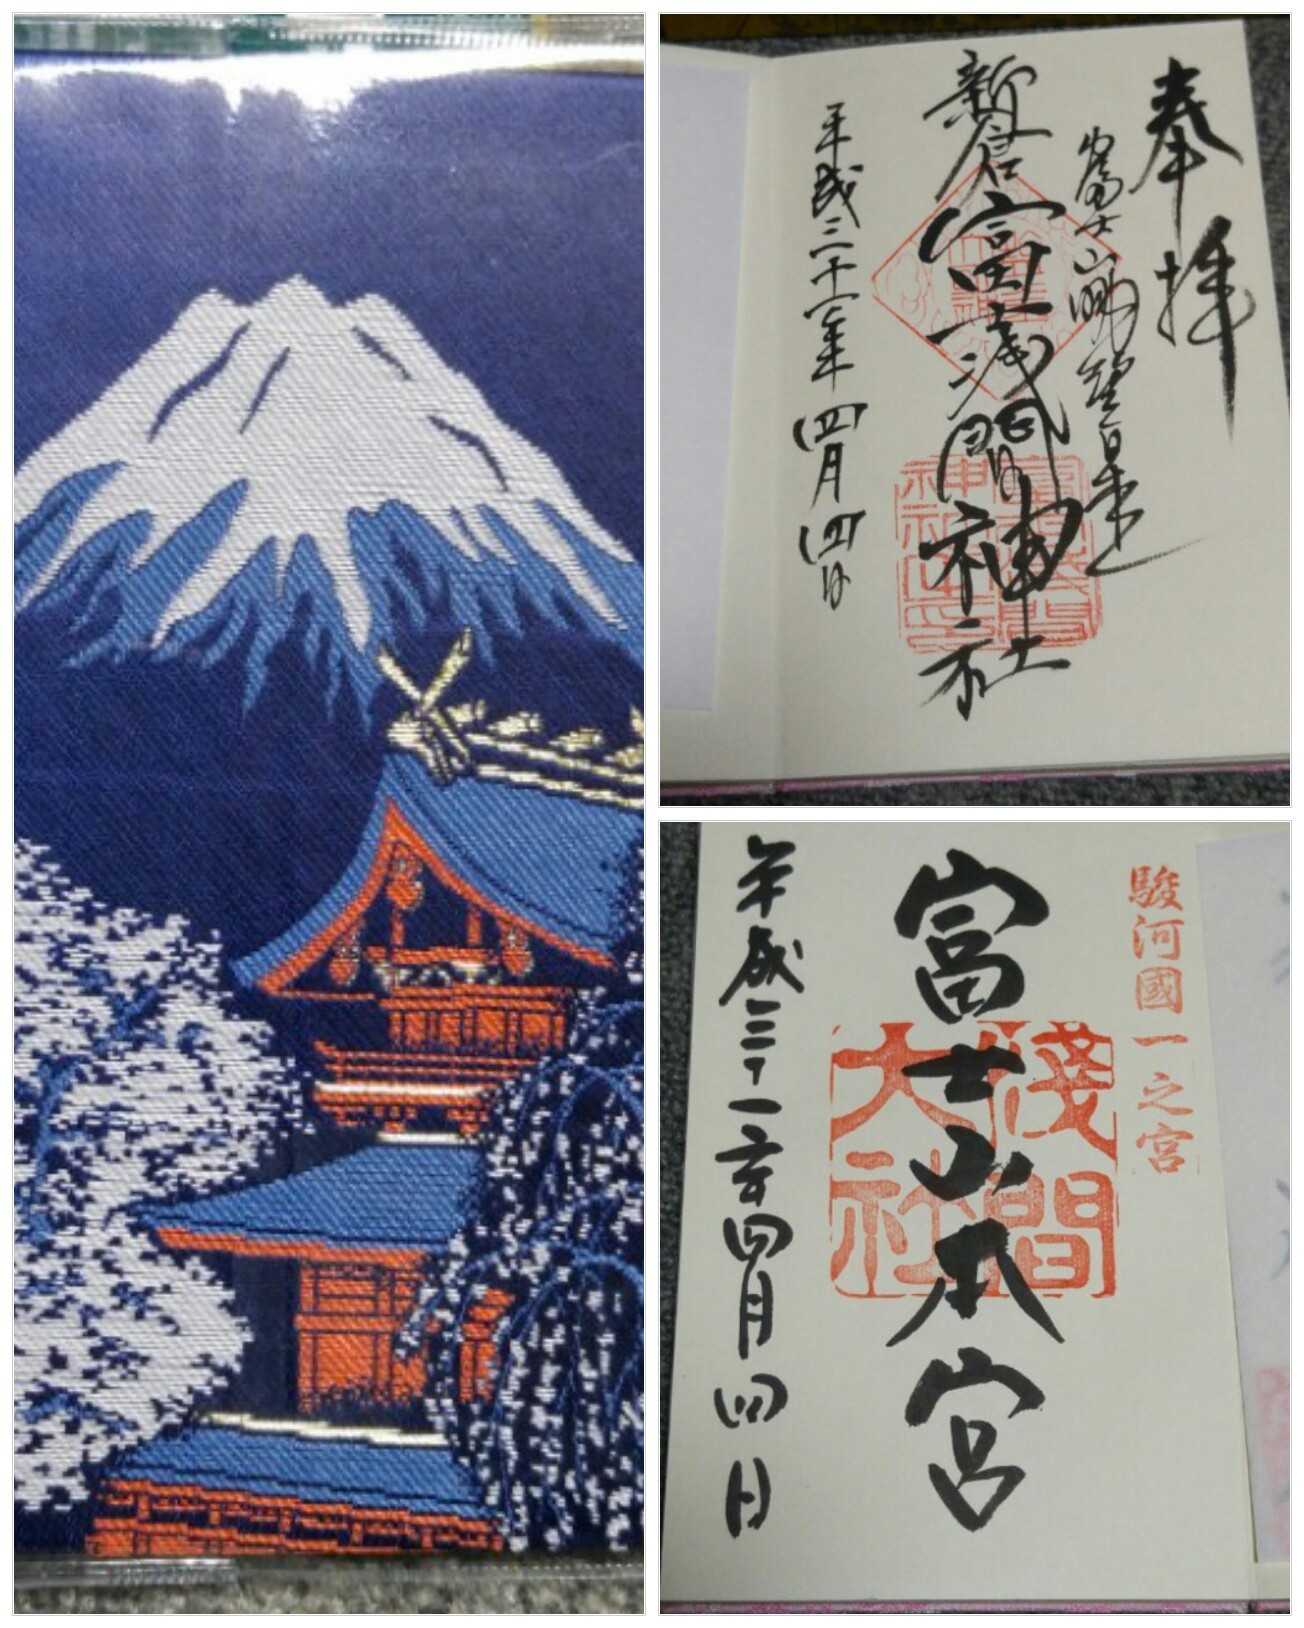 奉拝
富士山眺望日本一
新倉富士浅間神社
平成三十一年四月四日
駿河國一之宮
富士山本宮
浅間大社
平成三十一年四月四日